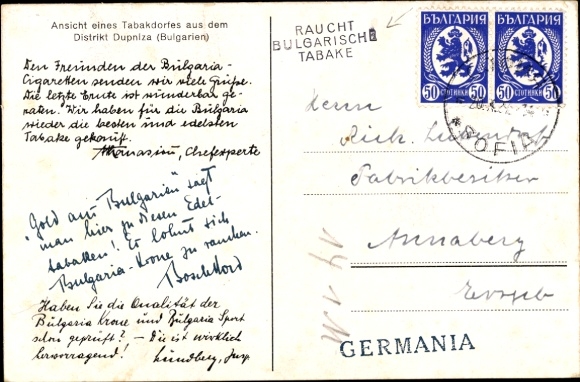 Ansicht eines Tabakdorfes aus dem
Distrikt Dupniza (Bulgarien)
Den Freunden der Bulgaria-
Cigaretten senden wir viele Grüsse.
Die letzte Ernte ist wunderbar ge-
raten. Wir haben für die Bulgaria
wieder die besten und edelsten
Tabake gekauft.
Athanasiu, Chefexperte
"Gold aus Bulgarien" sagt
man hier zu diesen Edel-
tabaken! Es lohnt sich
Bulgaria-Krone zu rauchen.
Haben Sie die Qualität der
Bulgaria Krone und Bulgaria Sport
schon geprüft? – Die ist wirklich
hervorragend! Lundberg, Insp.
RAUCHT
BULGARISCHE
TABAKE
БЪЛГАРИЯ
50 СТОТИНКИ 50
БЪЛГАРИЯ
50 СТОТИНКИ 50
* SOFIA
Herrn
Rich.
Fabrikbesitzer
Annaberg
Erzgeb
GERMANIA